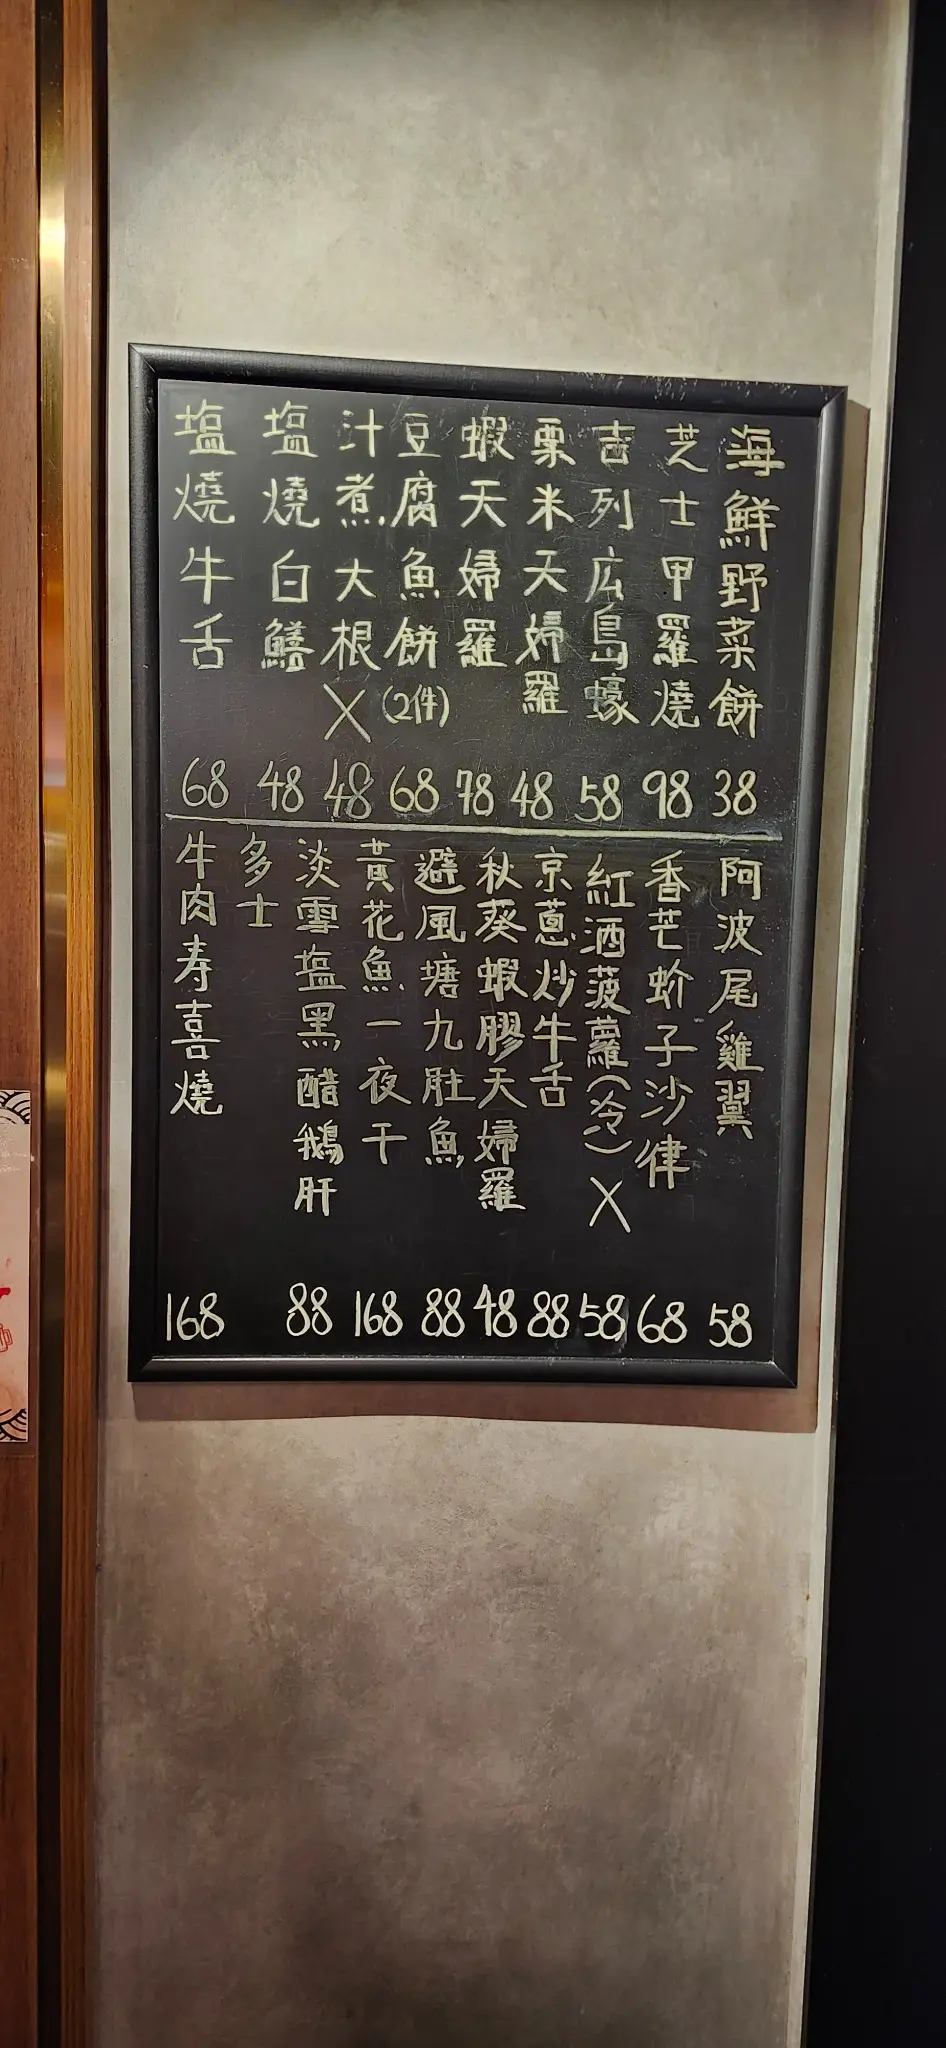 海鮮野菜餅 38
芝士甲羅燒 98
吉列広島蠔 58
粟米天婦羅 48
蝦天婦羅 78
豆腐魚餅(2件) 68
汁煮大根 X 48
塩燒白鱔 48
塩燒牛舌 68
阿波尾雞翼 58
香芒蚧子沙律 68
紅酒菠蘿(冷) X 58
京蔥炒牛舌 88
秋葵蝦膠天婦羅 48
避風塘九肚魚 88
黃花魚一夜干 168
淡雪塩黑醋鵝肝
多士 88
牛肉寿喜燒 168